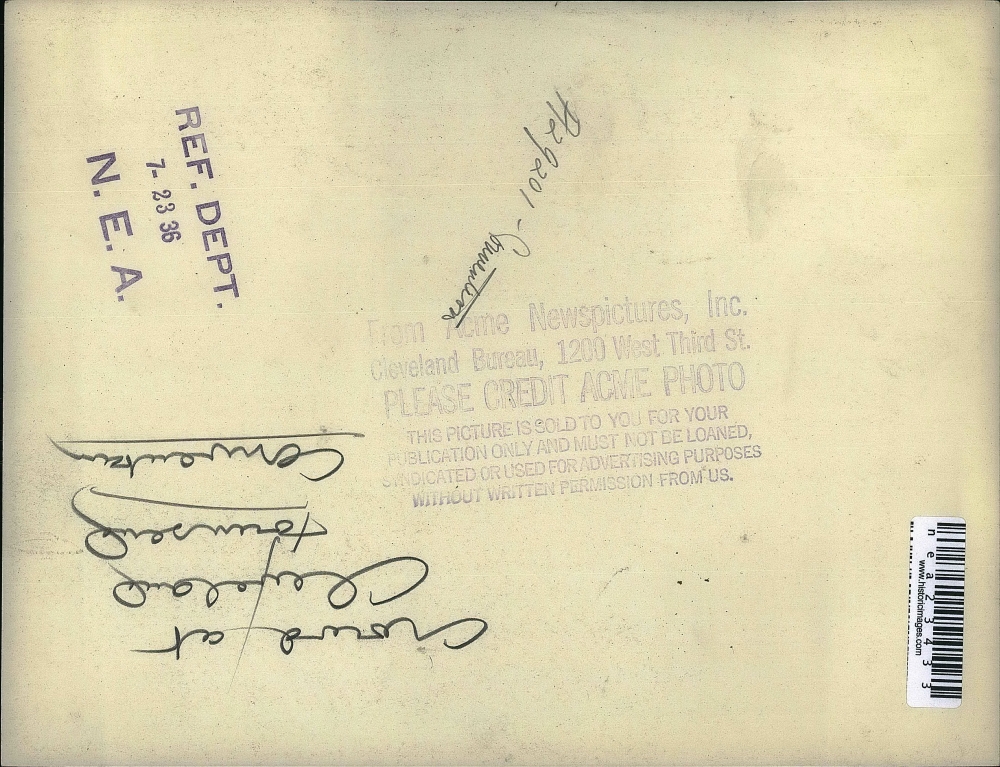 REF. DEPT.
7- 23 36
N. E. A.
A29201 - Convention
From Acme Newspictures, Inc.
Cleveland Bureau, 1200 West Third St.
PLEASE CREDIT ACME PHOTO
THIS PICTURE IS SOLD TO YOU FOR YOUR
PUBLICATION ONLY AND MUST NOT BE LOANED,
SYNDICATED OR USED FOR ADVERTISING PURPOSES
WITHOUT WRITTEN PERMISSION FROM US.
Crowd at
Cleveland
Townsend
Convention
nea23433
www.historicimages.com